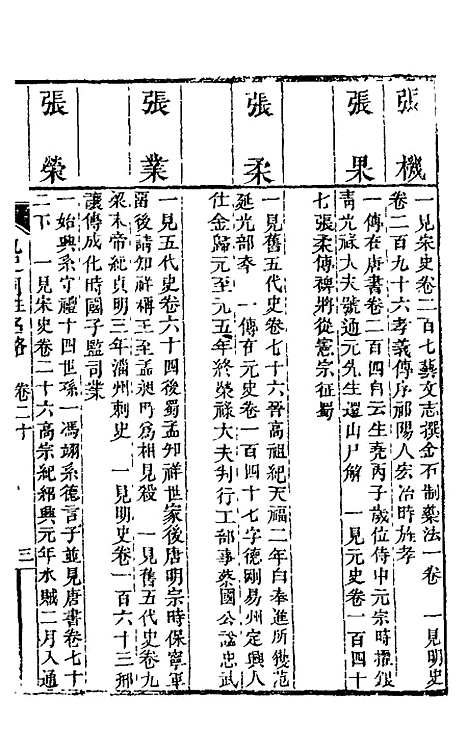 張機
一見宋史卷二百七藝文志撰金石制藥法一卷　一見明史
卷二百九十六孝義傳序祁陽人宏治時旌孝
張果
一傳在唐書卷二百四自云生堯丙子歲位侍中元宗時擢銀
青光祿大夫號通元先生還山尸解　一見元史卷一百四十
七張柔傳裨將從憲宗征蜀
張柔
一見舊五代史卷七十六晉高祖紀天福二年白奉進所獲范
延光部奉　一傳在元史卷一百四十七字德剛易州定興人
仕金歸元至元五年終榮祿大夫判行工部事蔡國公諡忠武
張業
一見五代史卷六十四後蜀孟知祥世家後唐明宗時保寧軍
留後請知祥稱王至孟昶時為相見殺　一見舊五代史卷九
梁末帝紀貞明三年淄州刺史　一見明史卷一百六十三邢
讓傳成化時國子監司業
張榮
一始興系守禮十四世孫一馮翊系德言子並見唐書卷七十
二下　一見宋史卷二十六高宗紀紹興元年水賊二月入通
九史同姓名略　卷二十　三